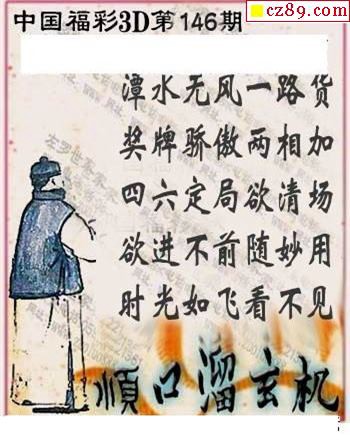 cz89.com
中国福彩3D第146期
潭水无风一路货
奖牌骄傲两相加
四六定局欲清场
欲进不前随妙用
时光如飞看不见
顺口溜玄机